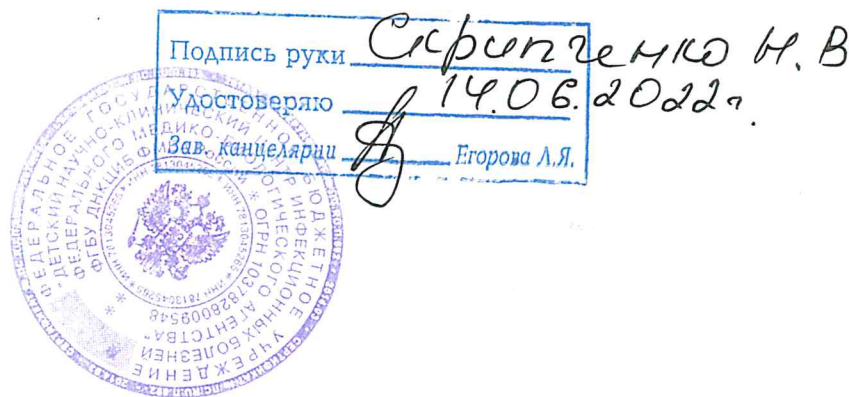 Подпись руки Скрипченко Н. В
Удостоверяю 14.06.2022г.
Зав. канцелярии Егорова Л.Я.
ФЕДЕРАЛЬНОЕ ГОСУДАРСТВЕННОЕ БЮДЖЕТНОЕ УЧРЕЖДЕНИЕ
"ДЕТСКИЙ НАУЧНО-КЛИНИЧЕСКИЙ ЦЕНТР ИНФЕКЦИОННЫХ БОЛЕЗНЕЙ
ФЕДЕРАЛЬНОГО МЕДИКО-БИОЛОГИЧЕСКОГО АГЕНТСТВА"
ФГБУ ДНКЦИБ ФМБА РОССИИ * ОГРН 1037828009548
* ИНН 7813045265 * ИНН 7813045265 * ИНН 7813045265